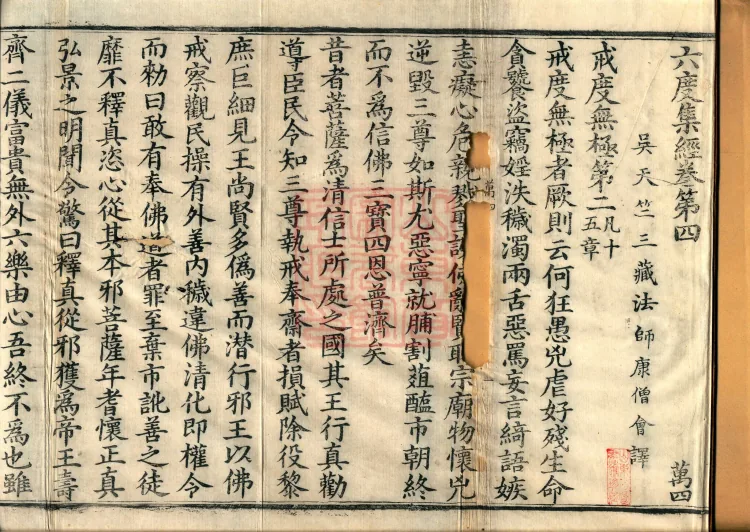 六度集經卷第四 萬四
吳天竺三藏法師康僧會譯
戒度無極第二凡十五章
戒度無極者厥則云何狂愚兇虐好殘生命
貪饕盜竊婬泆穢濁兩舌惡罵妄言綺語嫉
恚癡心危親戮聖謗佛亂賢取宗廟物懷兇
逆毀三尊如斯尤惡寧就脯割葅醢市朝終
而不爲信佛三寶四恩普濟矣
昔者菩薩爲清信士所處之國其王行真勸
導臣民令知三尊執戒奉齋者損賦除役黎
庶巨細見王尚賢多僞善而潜行邪王以佛
戒察觀民操有外善內穢違佛清化即權令
而勑曰敢有奉佛道者罪至棄市訛善之徒
靡不釋真恣心從其本邪菩薩年耆懷正真
弘景之明聞令驚曰釋真從邪獲爲帝王壽
齊二儀富貴無外六樂由心吾終不爲也雖